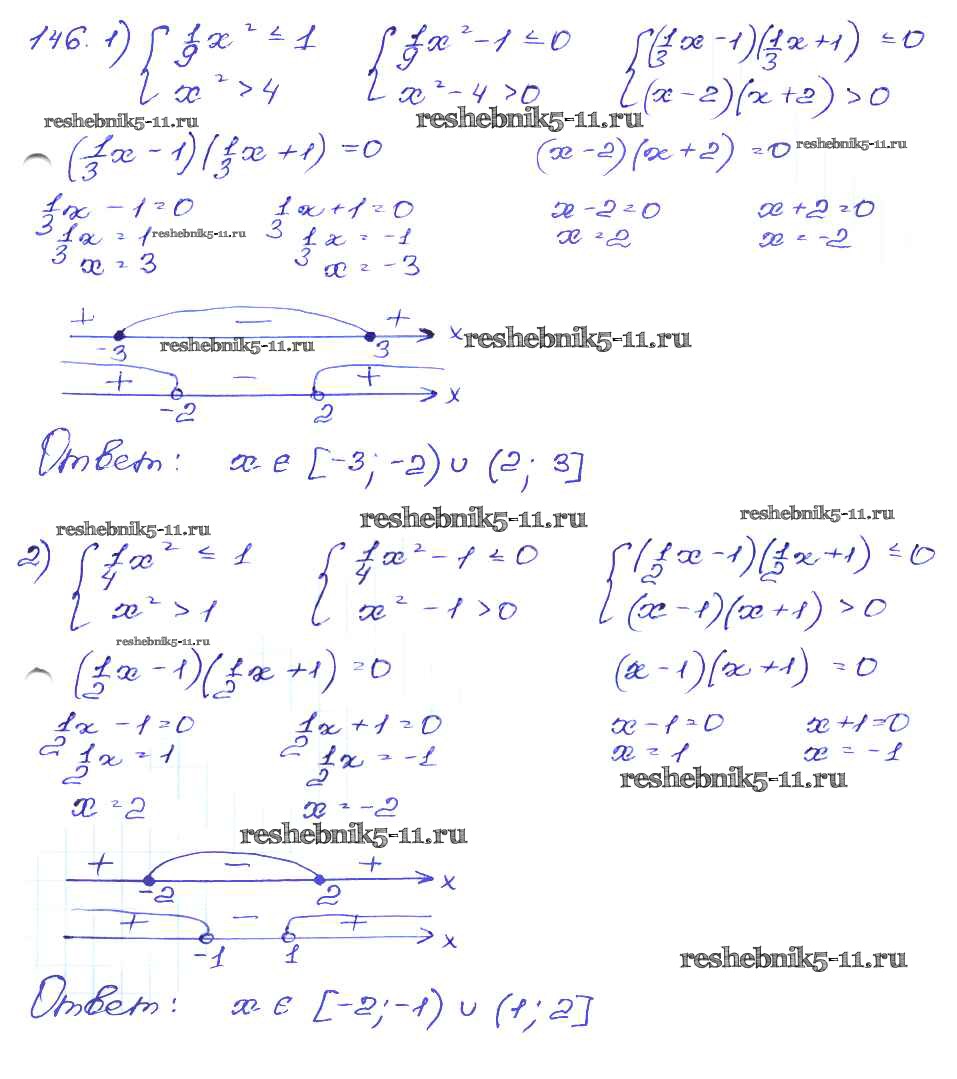 146. 1) { 1/9 x² ≤ 1 { 1/9 x² - 1 ≤ 0 { (1/3 x - 1)(1/3 x + 1) ≤ 0
x² > 4 x² - 4 > 0 (x - 2)(x + 2) > 0
reshebnik5-11.ru reshebnik5-11.ru
(1/3 x - 1)(1/3 x + 1) = 0 (x - 2)(x + 2) = 0 reshebnik5-11.ru
1/3 x - 1 = 0 1/3 x + 1 = 0 x - 2 = 0 x + 2 = 0
1/3 x = 1 reshebnik5-11.ru 1/3 x = -1 x = 2 x = -2
x = 3 x = -3
+ − + x reshebnik5-11.ru
-3 reshebnik5-11.ru 3
+ − + x
-2 2
Ответ: x ∈ [-3; -2) ∪ (2; 3]
reshebnik5-11.ru reshebnik5-11.ru reshebnik5-11.ru
2) { 1/4 x² ≤ 1 { 1/4 x² - 1 ≤ 0 { (1/2 x - 1)(1/2 x + 1) ≤ 0
x² > 1 x² - 1 > 0 (x - 1)(x + 1) > 0
reshebnik5-11.ru
(1/2 x - 1)(1/2 x + 1) = 0 (x - 1)(x + 1) = 0
1/2 x - 1 = 0 1/2 x + 1 = 0 x - 1 = 0 x + 1 = 0
1/2 x = 1 1/2 x = -1 x = 1 x = -1
reshebnik5-11.ru
x = 2 x = -2
reshebnik5-11.ru
+ − + x
-2 2
+ − + x
-1 1
reshebnik5-11.ru
Ответ: x ∈ [-2; -1) ∪ (1; 2]